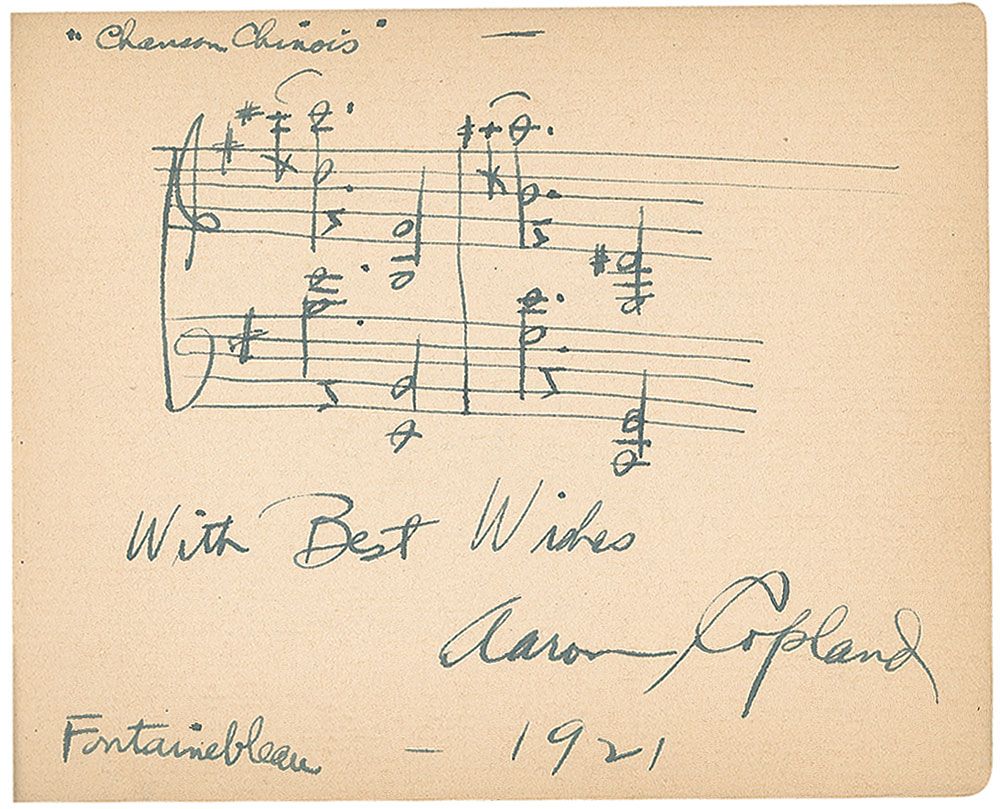 "Chanson Chinois" —
With Best Wishes
Aaron Copland
Fontainebleau — 1921